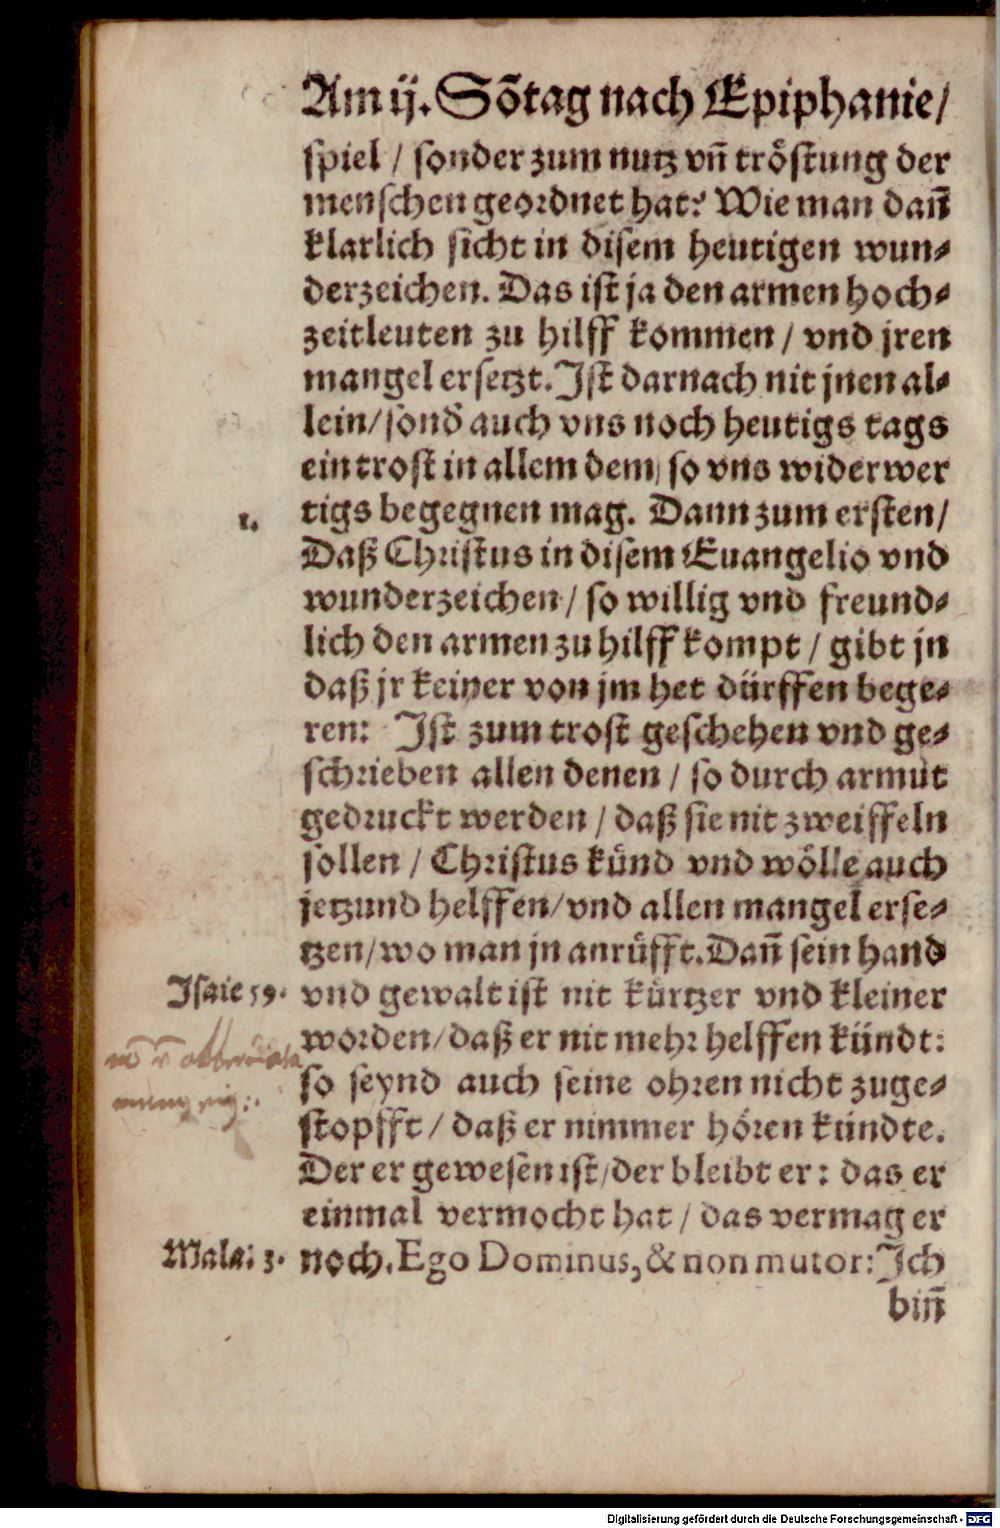 Am ij. Sõtag nach Epiphanie/
spiel / sonder zum nutz vñ tröstung der
menschen geordnet hat? Wie man dañ
klarlich sicht in disem heutigen wun⸗
derzeichen. Das ist ja den armen hoch⸗
zeitleuten zu hilff kommen / vnd jren
mangel ersetzt. Ist darnach nit jnen al⸗
lein/sond̕ auch vns noch heutigs tags
ein trost in allem dem/ so vns widerwer
1. tigs begegnen mag. Dann zum ersten/
Daß Christus in disem Euangelio vnd
wunderzeichen / so willig vnd freund⸗
lich den armen zu hilff kompt / gibt jn
daß jr keiner von jm het dürffen bege⸗
ren: Ist zum trost geschehen vnd ge⸗
schrieben allen denen / so durch armut
gedruckt werden / daß sie nit zweiffeln
sollen / Christus künd vnd wölle auch
jetzund helffen/vnd allen mangel erse⸗
tzen/wo man jn anrüfft. Dañ sein hand
Isaie 59. vnd gewalt ist nit kürtzer vnd kleiner
worden/daß er nit mehr helffen kündt:
so seynd auch seine ohren nicht zuge⸗
stopfft / daß er nimmer hören kündte.
Der er gewesen ist/der bleibt er: das er
einmal vermocht hat / das vermag er
Mala: 3. noch. Ego Dominus, & non mutor: Ich
biñ
Digitalisierung gefördert durch die Deutsche Forschungsgemeinschaft - DFG